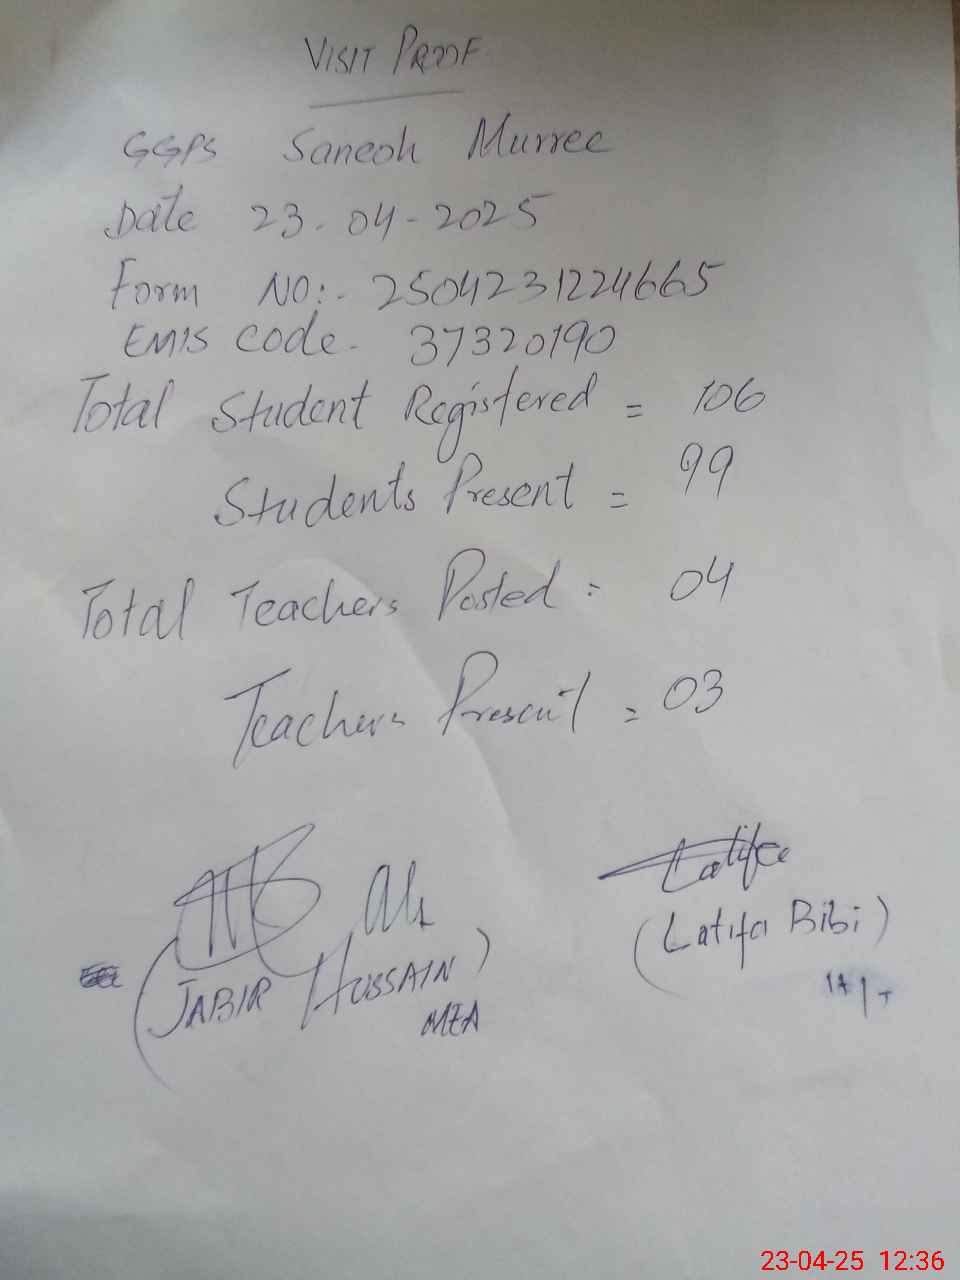 VISIT PROOF
GGPS Saneoh Murree
Date 23-04-2025
Form NO:- 2504231224665
EMIS code - 37320190
Total Student Registered = 106
Students Present = 99
Total Teachers Posted = 04
Teachers Present = 03
Latifa
(JABIR HUSSAIN) (Latifa Bibi)
MEA
23-04-25 12:36